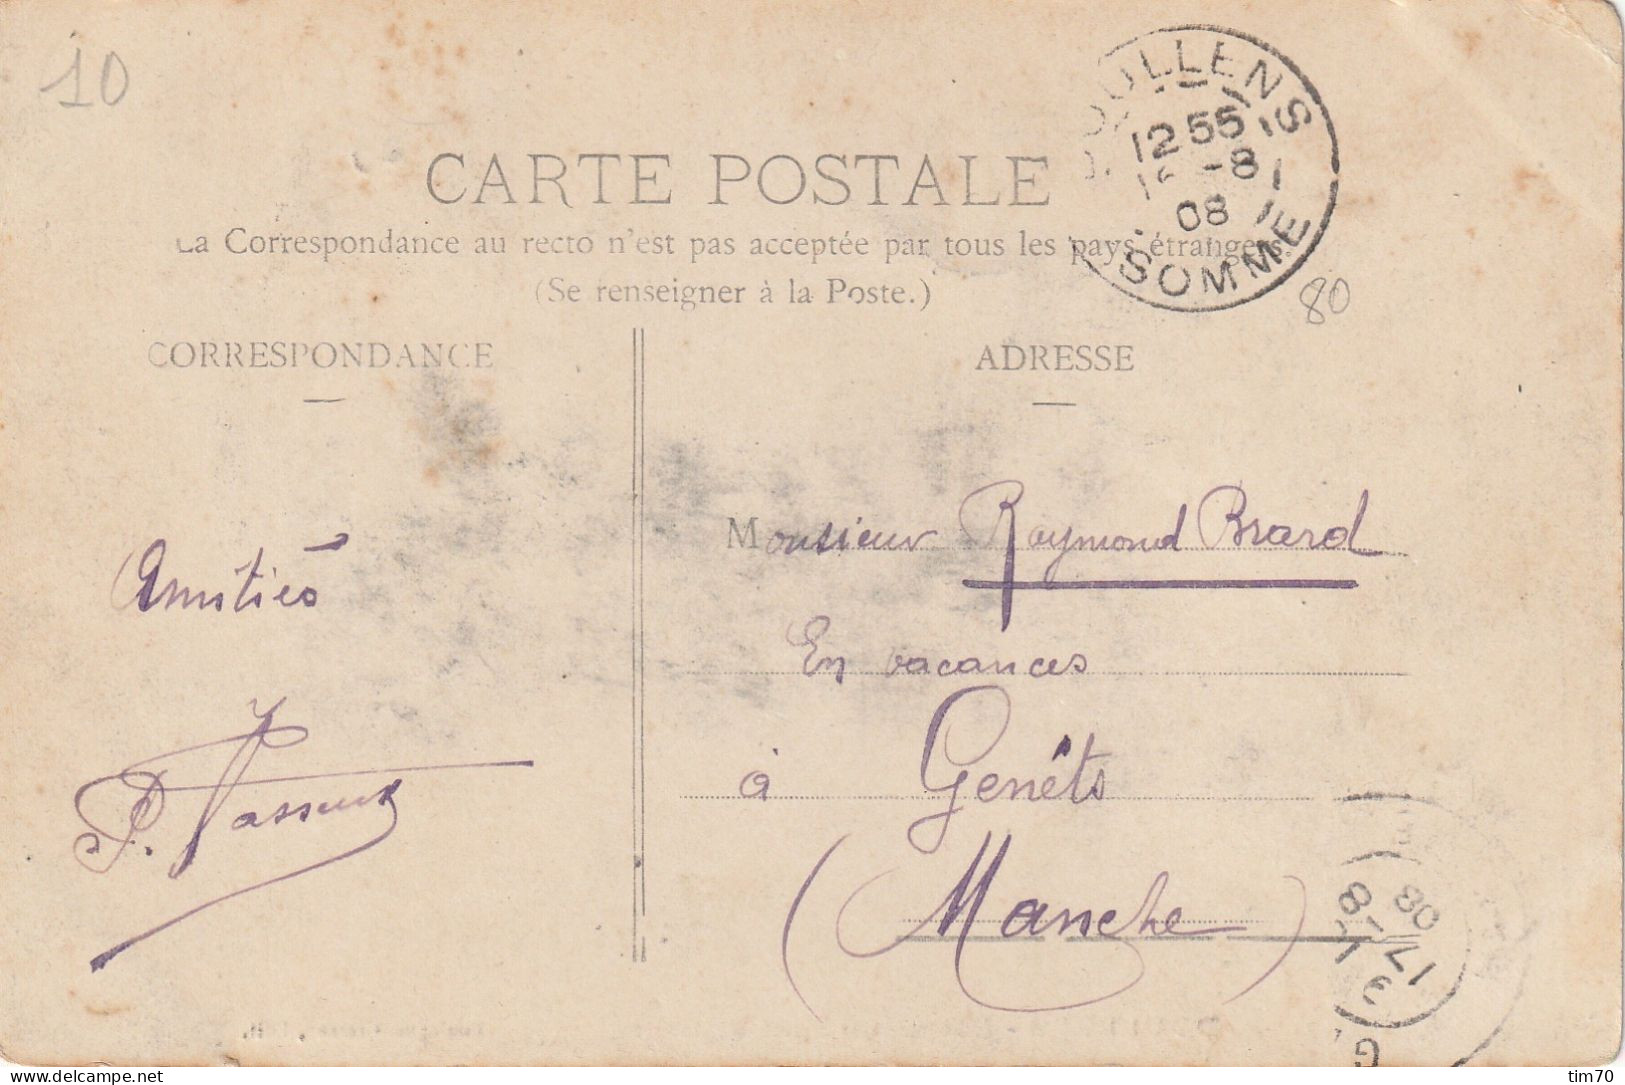 10
DOULLENS
12 55
-8
08
SOMME
CARTE POSTALE
La Correspondance au recto n'est pas acceptée par tous les pays étrangers.
(Se renseigner à la Poste.)
80
CORRESPONDANCE
ADRESSE
Amitiés
P. Vasseur
Monsieur Raymond Brard
En vacances
à Genêts
(Manche)
17-8
08
G
www.delcampe.net
tim70